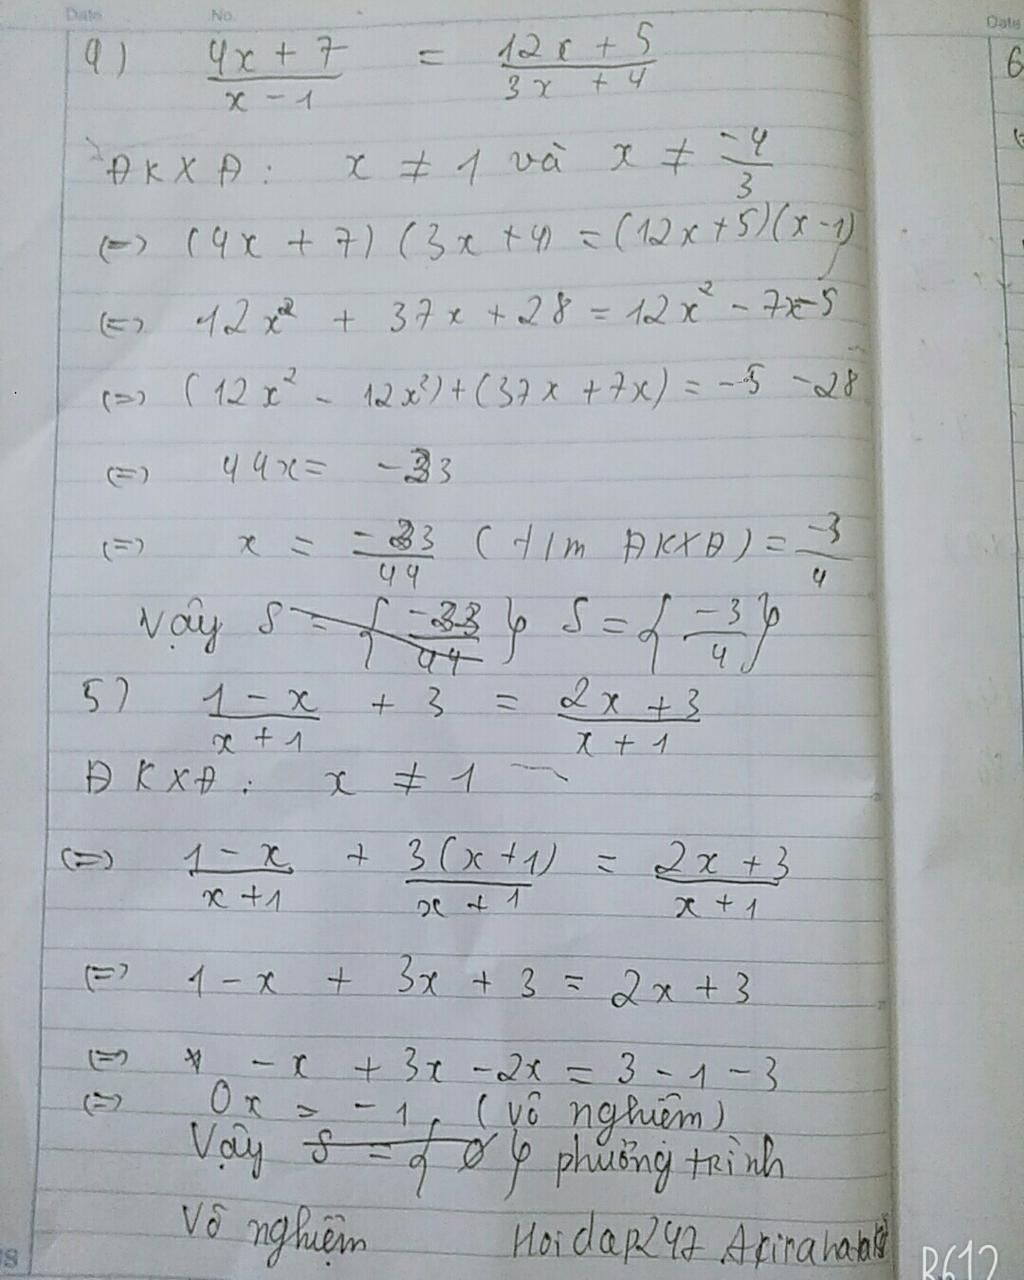 Date No. Date
4) (4x + 7)/(x - 1) = (12x + 5)/(3x + 4)
ĐKXĐ: x ≠ 1 và x ≠ -4/3
(=) (4x + 7) (3x + 4) = (12x + 5)(x - 1)
(=) 12x² + 37x + 28 = 12x² - 7x - 5
(=) (12x² - 12x²) + (37x + 7x) = -5 - 28
(=) 44x = -33
(=) x = -33/44 (t/m ĐKXĐ) = -3/4
Vậy S = { -33/44 } S = { -3/4 }
5) (1 - x)/(x + 1) + 3 = (2x + 3)/(x + 1)
ĐKXĐ: x ≠ 1
(=) (1 - x)/(x + 1) + 3(x + 1)/(x + 1) = (2x + 3)/(x + 1)
(=) 1 - x + 3x + 3 = 2x + 3
(=) -x + 3x - 2x = 3 - 1 - 3
(=) 0x = -1 (vô nghiệm)
Vậy S = { ∅ } phương trình
Vô nghiệm Hoidap247
B612